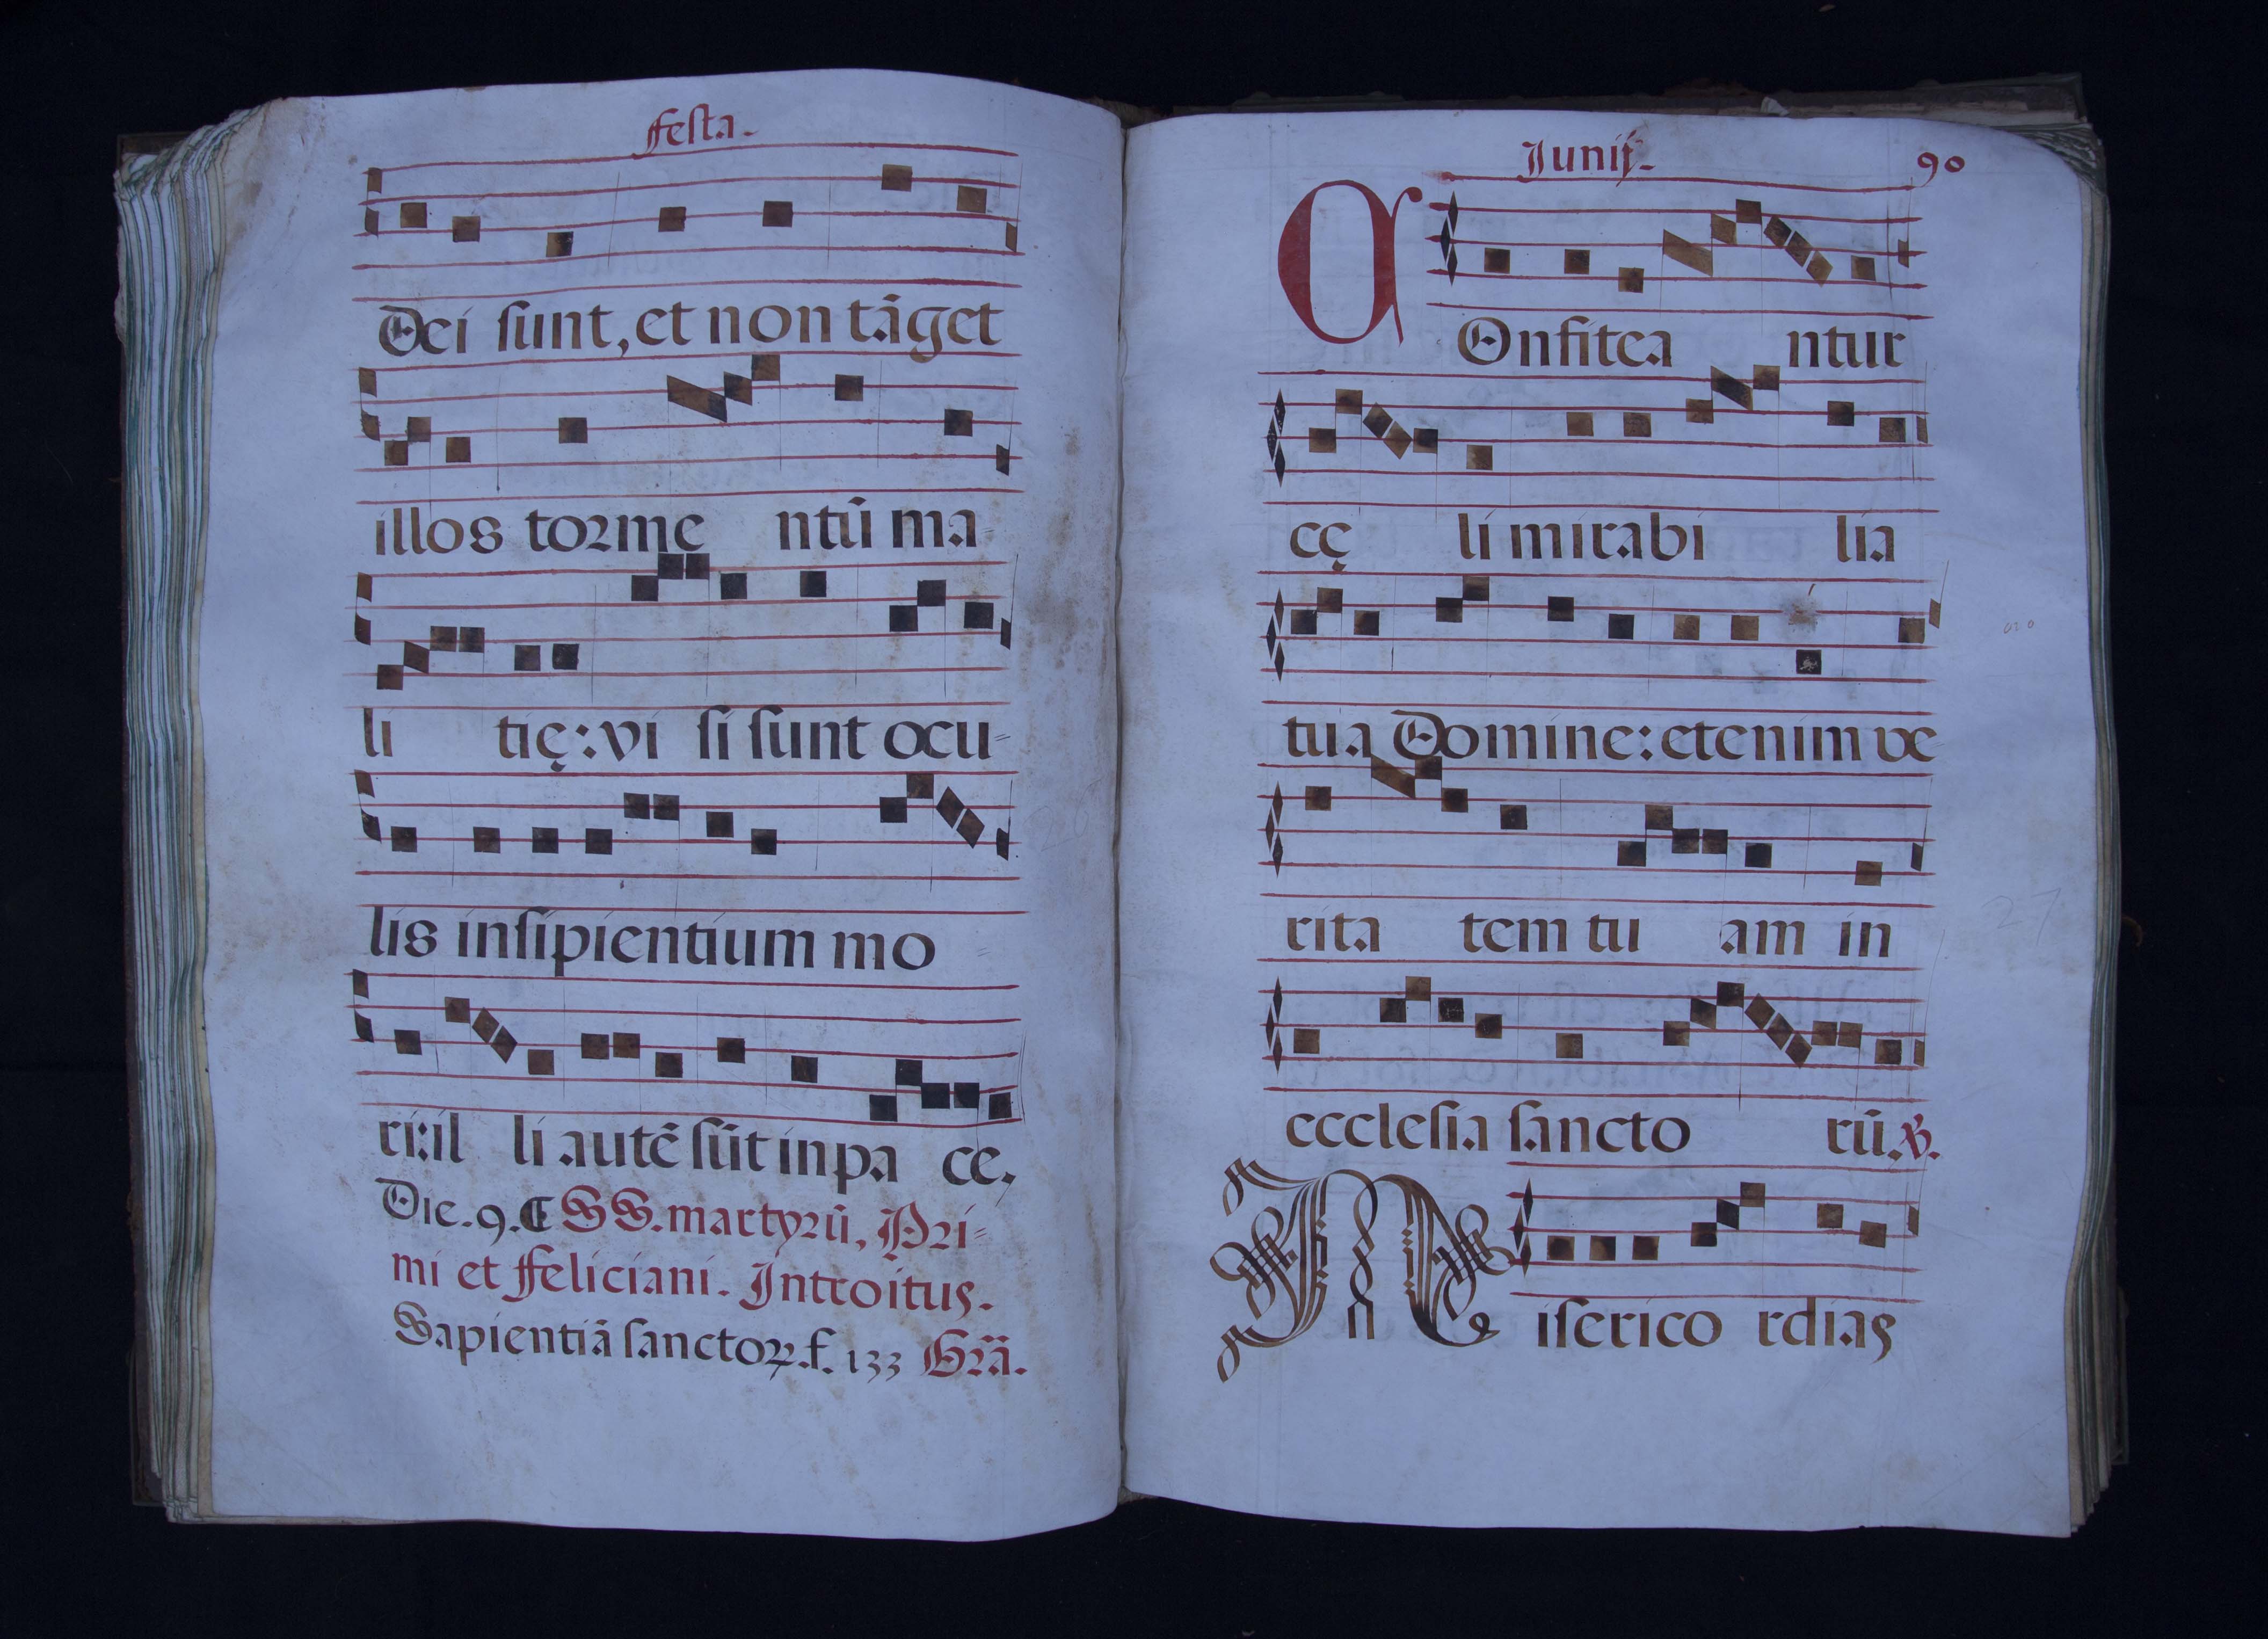 Festa.
Dei sunt, et non tāget
illos torme ntū ma
li tię: vi si sunt ocu-
lis insipientium mo
ri: il li autē sūt in pa ce.
Die. 9. ¶ SS. martyrū, Pri-
mi et Feliciani. Introitus.
Sapientiā sanctoꝝ. f. 133 Grā.
Junij. 90
COnfitea ntur
cę li mirabi lia
tua Domine: etenim ve-
rita tem tu am in
ecclesia sancto rū. ℣.
Miserico rdias